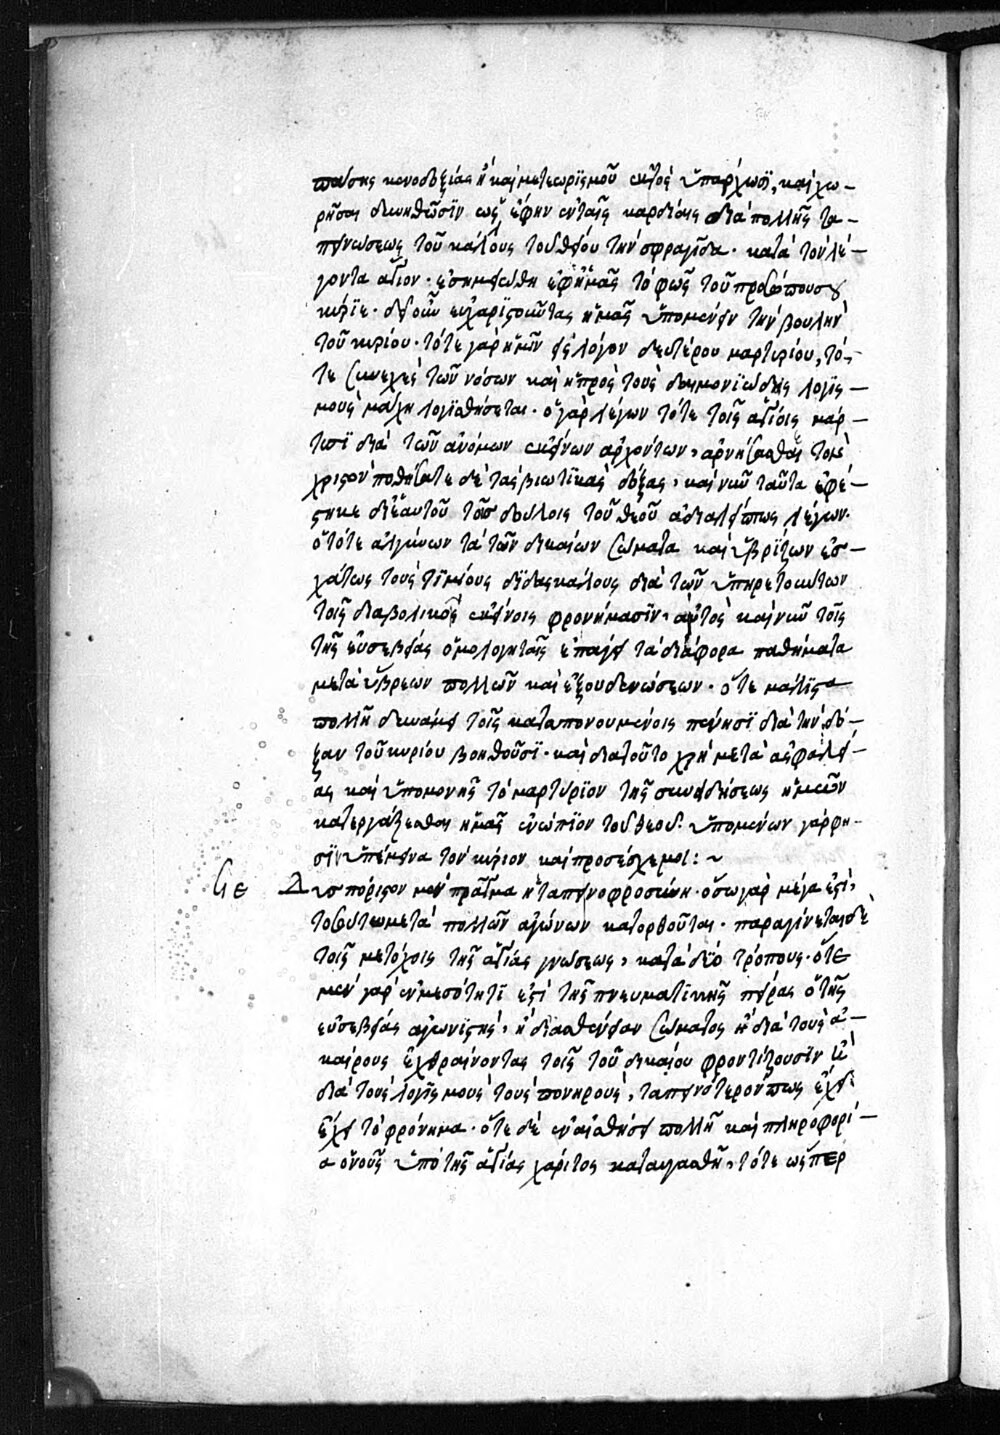 πάσης κενοδοξίας ἢ καὶ μετεωρϊσμοῦ ἐκτὸς ὑπαρχωσϊ, καὶ χω-
ρῆσαι δυνηθῶσϊν ὡς ἔφην ἐν ταῖς καρδίαις διὰ πολλῆς τα-
πεινώσεως τοῦ κάλλους τοῦ θείου τὴν σφραγῖδα· κατὰ τὸν λέ-
γοντα ἅγιον· ἐσημειώθη ἐφ ἡμᾶς τὸ φῶς τοῦ προσώπου σου
κύριε· δεῖ οὖν εὐχαρϊστοῦντας ἡμᾶς ὑπομένειν τὴν βουλὴν
τοῦ κυρίου· τότε γὰρ ἡμῶν εἰς λόγον δευτέρου μαρτυρίου, τό-
τε συνεχὲς τῶν νόσων καὶ ἡ πρὸς τοὺς δαιμονϊώδεις λογϊς-
μοὺς μάχη λογϊσθήσεται· ὁ γὰρ λέγων τότε τοῖς ἁγίοις μάρ-
τυσϊ διὰ τῶν ἀνόμων ἐκείνων ἀρχόντων, ἀρνήσασθαι τὸν
χριστὸν ποθήσατε δὲ τὰς βιωτϊκὰς δόξας, καὶ νῦν ταῦτα ἐφέ-
στηκε δϊ ἑαυτοῦ τοῖς δούλοις τοῦ θεοῦ ἀδιαλείπτως λέγων·
ὁ τότε αἰκίζων τὰ τῶν δικαίων σώματα καὶ ὑβρίζων ἐσ-
χάτως τοὺς τϊμίους δϊδασκάλους διὰ τῶν ὑπηρετούντων
τοῖς διαβολικοῖς ἐκείνοις φρονήμασϊν, αὐτὸς καὶ νῦν τοῖς
τῆς εὐσεβείας ὁμολογηταῖς ἐπάγει τὰ διάφορα παθήματα
μετὰ ὕβρεων πολλῶν καὶ ἐξουδενώσεων· ὅτε μάλϊστα
πολλῇ δυνάμει τοῖς καταπονουμένοις πένησϊ διὰ τὴν δό-
ξαν τοῦ κυρίου βοηθοῦσϊ· καὶ διατοῦτο χρὴ μετὰ ἀσφαλεί-
ας καὶ ὑπομονῆς τὸ μαρτύρϊον τῆς συνειδήσεως ἡμῶν
κατεργάζεσθαι ἡμᾶς ἐνώπϊον τοῦ θεοῦ· ὑπομένων γάρ φη-
σϊν ὑπέμεινα τὸν κύριον καὶ προσέσχε μοι: ~
ϟε Δυσπόριστον μὲν πρᾶγμα ἡ ταπεινοφροσύνη· ὅσω γὰρ μέγα ἐστὶ,
τοσούτω μετὰ πολλῶν ἀγώνων κατορθοῦται· παραγίνεται δὲ
τοῖς μετόχοις τῆς ἁγίας γνώσεως, κατὰ δύο τρόπους· ὅτε
μὲν γὰρ ἐν μεσότητϊ ἐστὶ τῆς πνευματϊκῆς πείρας ὁ τῆς
εὐσεβείας ἀγωνιστὴς, ἢ δι ασθένειαν σώματος ἢ διὰ τοὺς ἀ-
καίρους ἐχθραίνοντας τοῖς τοῦ δικαίου φροντίζουσϊν ἢ
διὰ τοὺς λογϊσμοὺς τοὺς πονηροὺς, ταπεινότερόν πως ἔχει
ἔχει τὸ φρόνημα· ὅτε δὲ ἐν αἰσθήσει πολλῇ καὶ πληροφορί-
α ὁ νοῦς ὑπὸ τῆς ἁγίας χάριτος καταυγασθῆ, τότε ὥσπερ